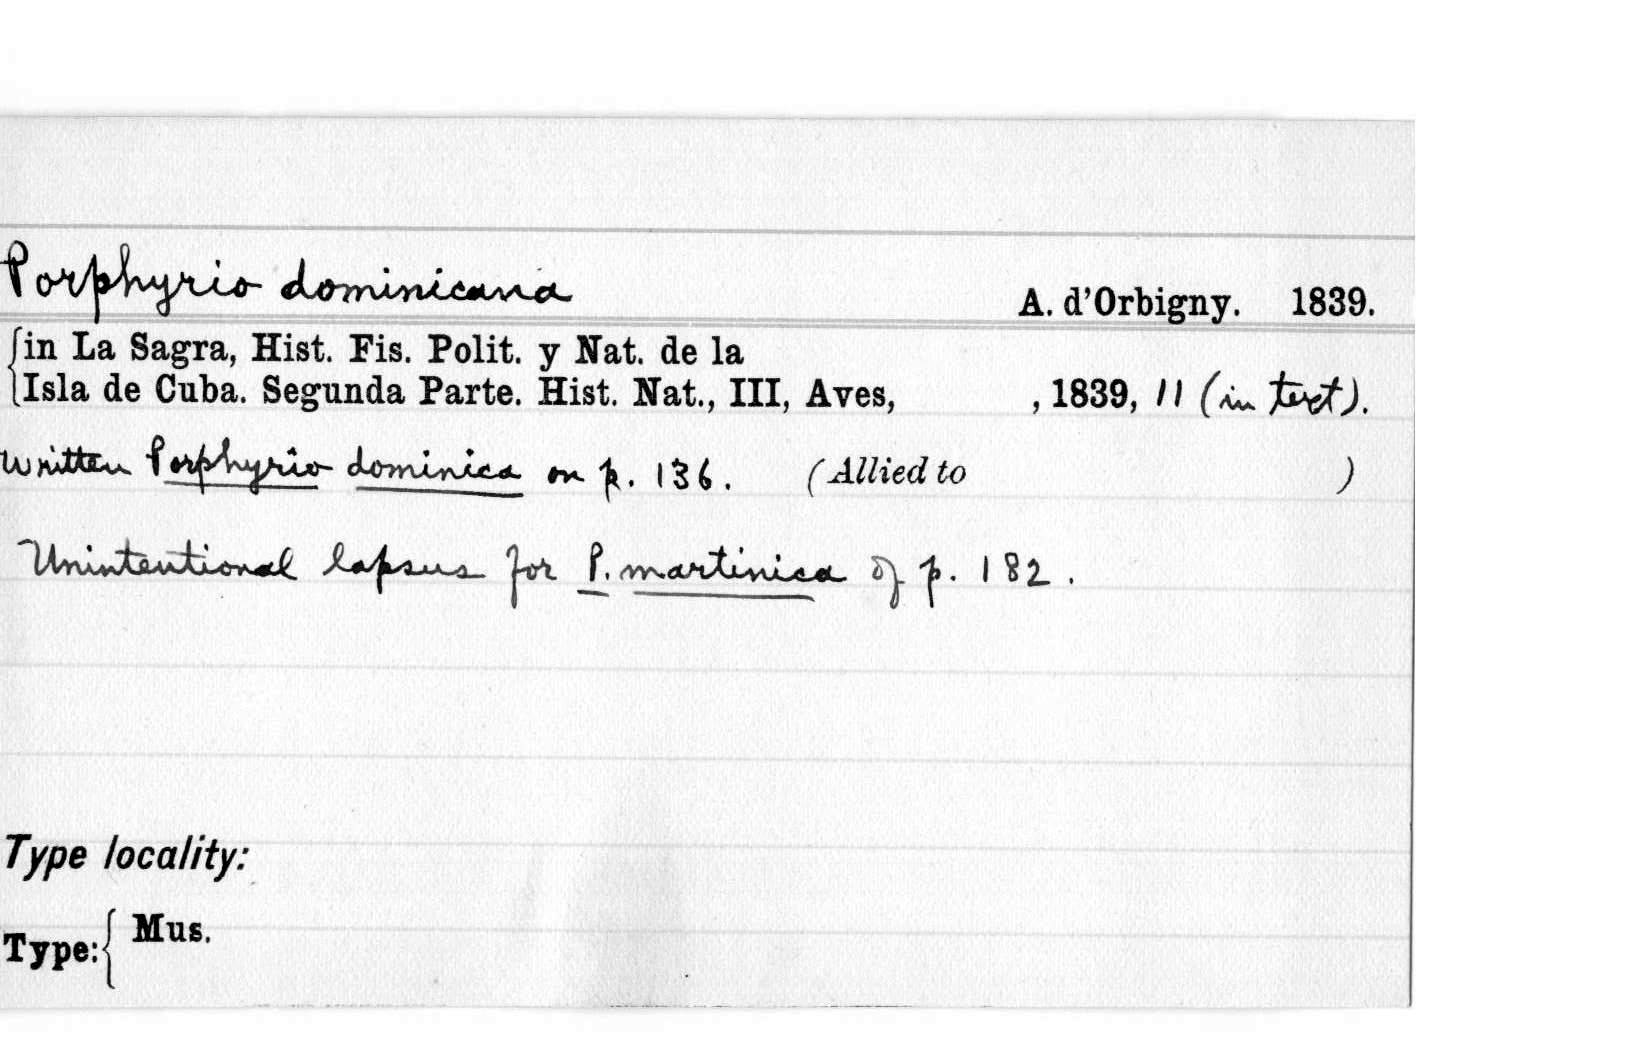 Porphyrio dominicana A. d'Orbigny. 1839.
in La Sagra, Hist. Fis. Polit. y Nat. de la
Isla de Cuba. Segunda Parte. Hist. Nat., III, Aves, , 1839, 11 (in text).
Written Porphyrio dominica on p. 136. (Allied to )
Unintentional lapsus for P. martinica of p. 182.
Type locality:
Type: { Mus.